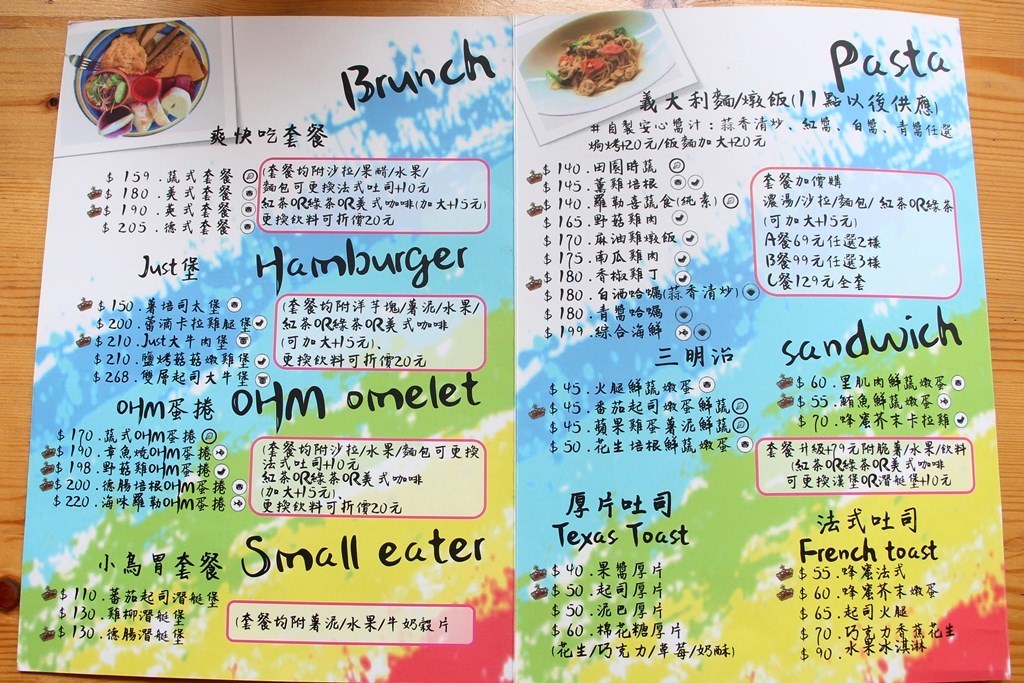 Brunch
爽快吃套餐
$ 159 . 蔬式套餐
$ 180 . 美式套餐
$ 190 . 英式套餐
$ 205 . 德式套餐
(套餐均附沙拉/果醋/水果/
麵包可更換法式吐司+10元
紅茶OR綠茶OR美式咖啡(加大+15元)
更換飲料可折價20元
Just堡 Hamburger
$ 150 . 薯培司太堡
$ 200 . 蕾滴卡拉雞腿堡
$ 210 . Just大牛肉堡
$ 210 . 鹽烤菇菇嫩雞堡
$ 268 . 雙層起司大牛堡
(套餐均附洋芋塊/薯泥/水果/
紅茶OR綠茶OR美式咖啡
(可加大+15元)、
更換飲料可折價20元
OHM蛋捲 OHM omelet
$ 170 . 蔬式OHM蛋捲
$ 190 . 章魚燒OHM蛋捲
$ 198 . 野菇雞OHM蛋捲
$ 200 . 德腸培根OHM蛋捲
$ 220 . 海味羅勒OHM蛋捲
(套餐均附沙拉/水果/麵包可更換
法式吐司+10元
紅茶OR綠茶OR美式咖啡
(加大+15元)
更換飲料可折價20元
小鳥胃套餐 Small eater
$ 110 . 蕃茄起司潛艇堡
$ 130 . 雞柳潛艇堡
$ 130 . 德腸潛艇堡
(套餐均附薯泥/水果/牛奶穀片
Pasta
義大利麵/燉飯(11點以後供應)
#自製安心醬汁：蒜香清炒、紅醬、白醬、青醬任選
焗烤+20元/飯麵加大+20元
$ 140 . 田園時蔬
$ 145 . 薰雞培根
$ 140 . 羅勒香蔬食(純素)
$ 165 . 野菇雞肉
$ 170 . 麻油雞燉飯
$ 175 . 南瓜雞肉
$ 180 . 香椒雞丁
$ 180 . 白酒哈蠣(蒜香清炒)
$ 180 . 青醬哈蠣
$ 199 . 綜合海鮮
套餐加價購
濃湯/沙拉/麵包/紅茶OR綠茶
(可加大+15元)
A餐69元任選2樣
B餐99元任選3樣
C餐129元全套
三明治 sandwich
$ 45 . 火腿鮮蔬嫩蛋
$ 45 . 番茄起司嫩蛋鮮蔬
$ 45 . 蘋果雞蛋薯泥鮮蔬
$ 50 . 花生培根鮮蔬嫩蛋
$ 60 . 里肌肉鮮蔬嫩蛋
$ 55 . 鮪魚鮮蔬嫩蛋
$ 70 . 蜂蜜芥末卡拉雞
套餐升級+79元附脆薯/水果/飲料
(紅茶OR綠茶OR美式咖啡
可更換漢堡OR潛艇堡+10元
厚片吐司
Texas Toast
$ 40 . 果醬厚片
$ 50 . 起司厚片
$ 50 . 泥巴厚片
$ 60 . 棉花糖厚片
(花生/巧克力/草莓/奶酥)
法式吐司
French toast
$ 55 . 蜂蜜法式
$ 60 . 蜂蜜芥末嫩蛋
$ 65 . 起司火腿
$ 70 . 巧克力香蕉花生
$ 90 . 水果冰淇淋